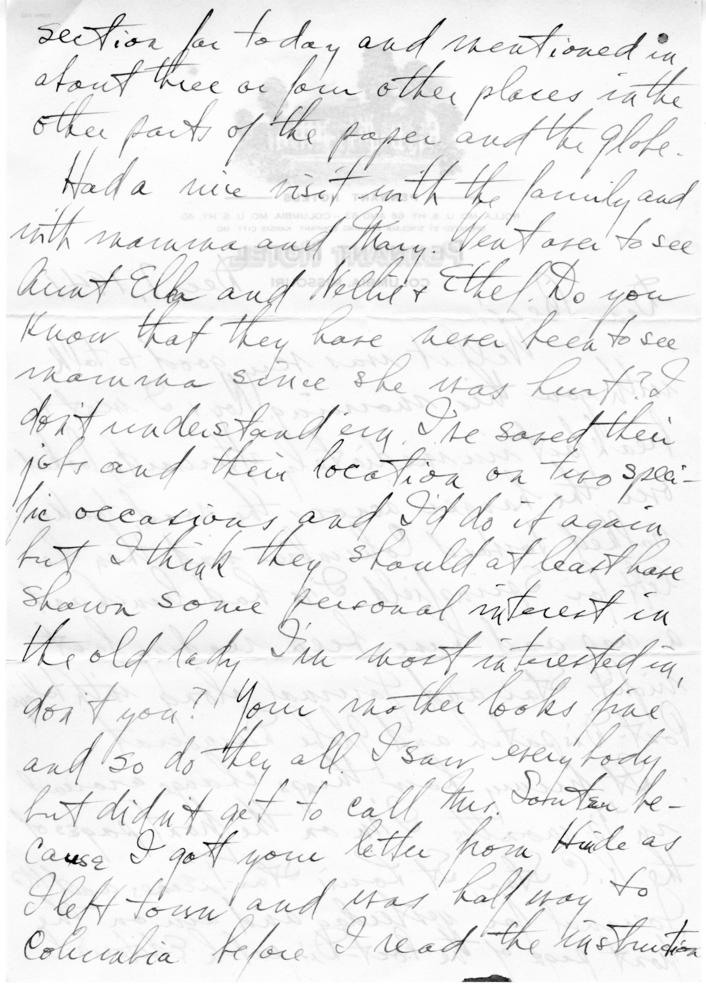 section for today and mentioned in
about three or four other places in the
other parts of the paper and the Globe.
Had a nice visit with the family and
with mamma and Mary. Went over to see
Aunt Ella and Nellie & Ethel. Do you
know that they have never been to see
mamma since she was hurt? I
don't understand em. I've saved their
jobs and their location on two speci-
fic occasions and I'd do it again
but I think they should at least have
shown some personal interest in
the old lady I'm most interested in,
don't you? Your mother looks fine
and so do they all. I saw everybody
but didn't get to call Mrs. be-
cause I got your letter from Hinde as
I left town and was half way to
Columbia before I read the instruction